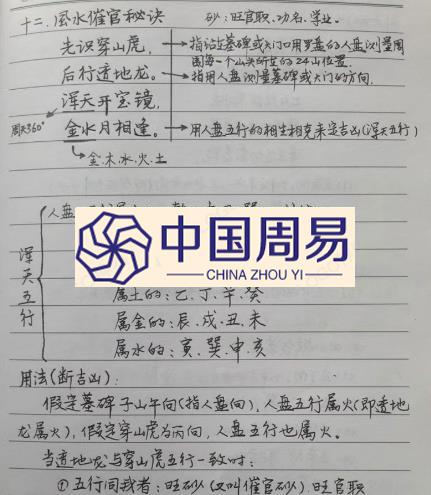 十二.風水催官秘诀 砂:旺官职、功名、学业。
先识穿山虎, → 指站在墓碑或大门口用罗盘的人盘测量周
围每一个山头所在的24山位置.
后行透地龙。→ 指用人盘测量墓碑或大门的方向.
浑天开宝镜,
周天360°
金水月相逢。→ 用人盘五行的相生相克来定吉凶(浑天五行)
金.木.水.火.土
人盘
中国周易
CHINA ZHOU YI
浑天五行
属土的:乙.丁.辛.癸
属金的:辰.戌.丑.未
属水的:寅.巽.申.亥
用法(断吉凶):
假定墓碑子山午向(指人盘向),人盘五行属火(即透地
龙属火),假定穿山虎为丙向,人盘五行也属火。
当透地龙与穿山虎五行一致时:
①五行同我者:旺砂(又叫催官砂)旺官职